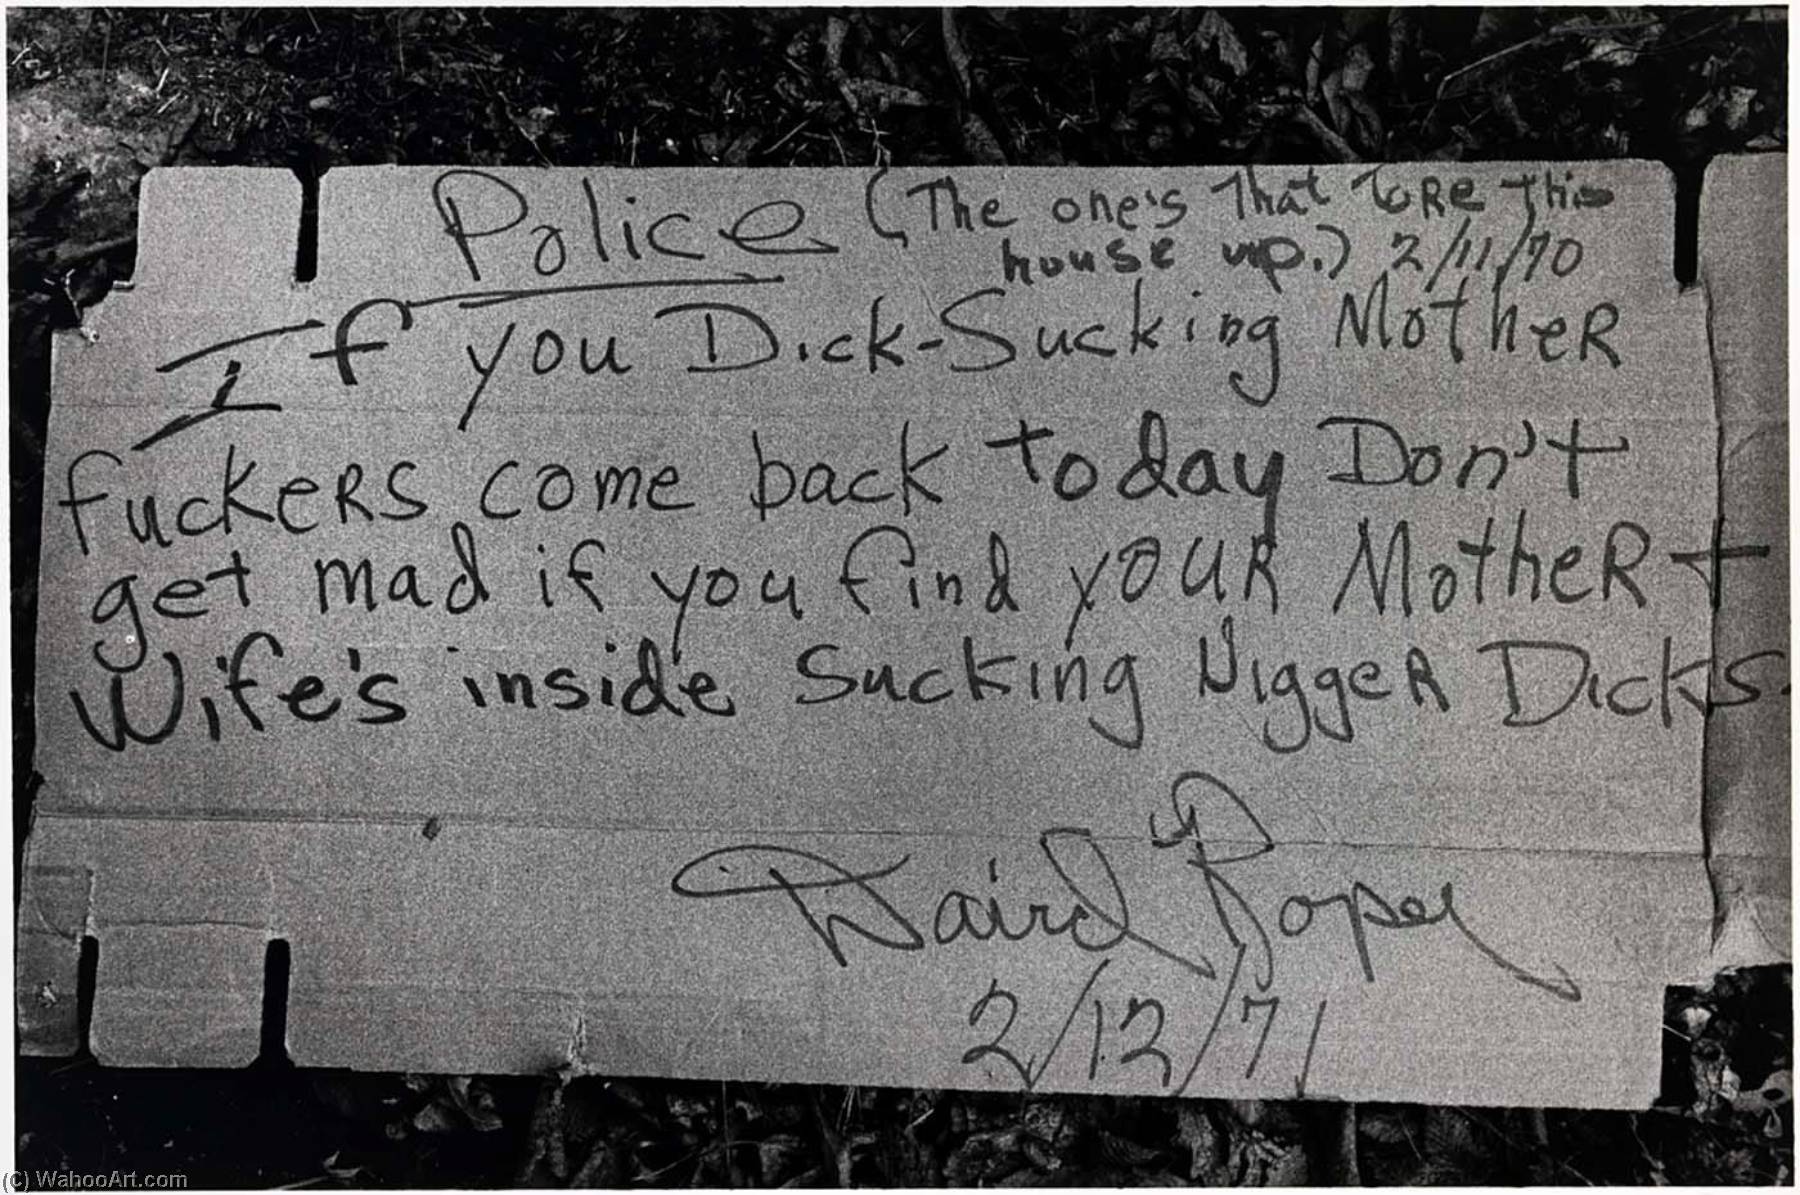 Police (The one's that tore this
house up.) 2/11/70
If you Dick-Sucking Mother
fuckers come back today Don't
get mad if you find your Mother +
Wife's inside Sucking Nigger Dicks.
Daird Roper
2/12/71
(C) WahooArt.com